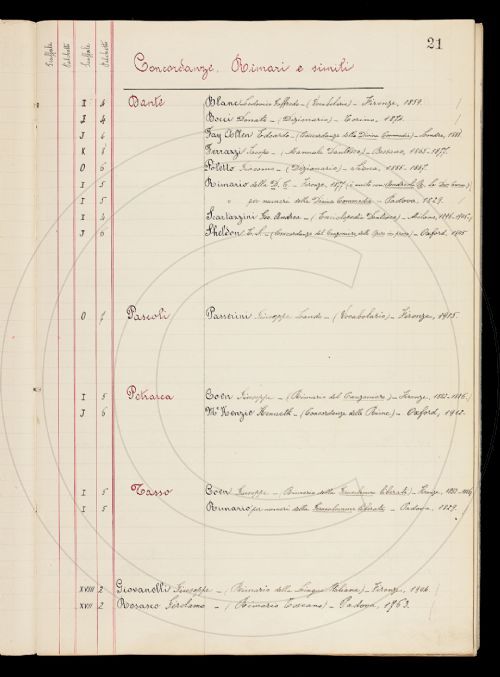 21
Scaffale Palchetti Scaffale Palchetti
Concordanze, Rimari e simili
I 4 Dante Blanc Lodovico Goffredo - (Vocabolario) - Firenze, 1859. /
J 4 Bocci Donato - (Dizionario) - Torino, 1873. /
J 6 Fay Allen Edoardo - (Concordanza della Divina Commedia) - Londra, 1888
K 8 Ferrazzi Jacopo - (Manuale Dantesco) - Bassano, 1865-1877.
O 6 Poletto Giacomo - (Dizionario) - Siena, 1885-1887.
I 5 Rimario della D. C. - Firenze, 1877
I 5 " per numeri della Divina Commedia - Padova, 1829. /
I 4 Scartazzini Gio. Andrea - (Enciclopedia Dantesca) - Milano, 1896-1905. /
J 6 Sheldon E. S. - (Concordanza del Canzoniere delle Opere in prosa) - Oxford, 1905
O 7 Pascoli Passerini Giuseppe Lando - (Vocabolario) - Firenze, 1915.
I 5 Petrarca Coen Giuseppe - (Rimario del Canzoniere) - Firenze, 1882-1886. /
J 6 Mc Kenzie Kenneth - (Concordanza delle Rime) - Oxford, 1912.
I 5 Tasso Coen Giuseppe - (Rimario della Gerusalemme liberata) - Firenze,
I 5 Rimario per numeri della Gerusalemme liberata - Padova, 1829. /
XVIII 2 Giovanelli Giuseppe - (Rimario della Lingua Italiana) - Firenze, 1904. /
XVII 2 Rosasco Gerolamo - (Rimario Toscano) - Padova, 1763.